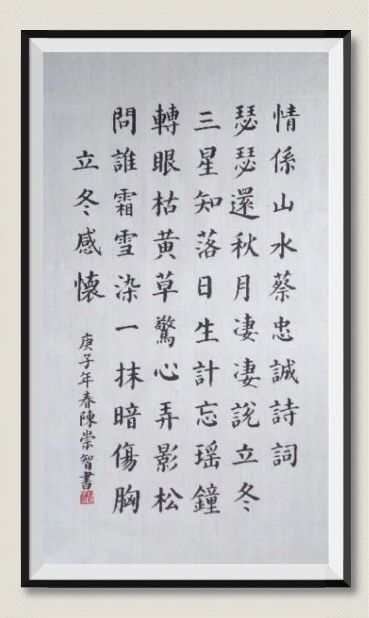 情係山水蔡忠誠詩詞
瑟瑟還秋月凄凄説立冬
三星知落日生計忘瑶鐘
轉眼枯黄草驚心弄影松
問誰霜雪染一抹暗傷胸
立冬感懷
庚子年春陳崇智書